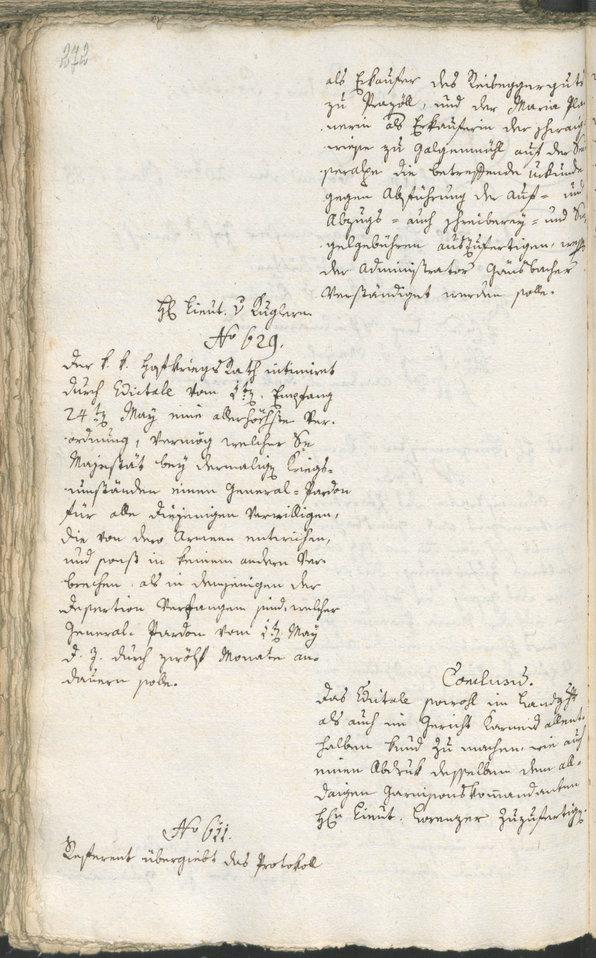 272
als Erkaufer des Reibeggerguts
zu Prazöll, und der Maria Pla-
nerin als Erkauferin der
wiese zu Galgenmühl auf der
die betreffende Urkunde
gegen Abführung der Auf- und
Abzugs- auch Schreiberey- und Si-
gelgebühren auszufertigen,
der Administrator Gänsbacher
verständiget werden solle.
H Lieut. v Kuglern
No 629.
Der k. k. HofkriegsRath intimiret
durch Edictale vom 1ten Empfang
24ten May eine allerhöchste Ver-
ordnung, vermög welcher Se
Majestät bey dermalign Kriegs-
umständen einen General-Pardon
für alle diejenigen verwilligen,
die von dero Armeen entwichen,
und sonst in keinem andern Ver-
brechen als in demjenigen der
Desertion verfangen sind, welcher
General-Pardon vom 1ten May
d. J. durch zwölf Monate an-
dauern solle.
Conclusum.
Das Edictale sowohl im Landgcht
als auch im Gericht Karneid allent-
halben kund zu machen, wie auch
einen Abdruk desselben dem all-
daigen Garnisonskommandanten
Hrn Lieut. Lorenzer zuzufertign.
No
Referent übergiebt das Protokoll